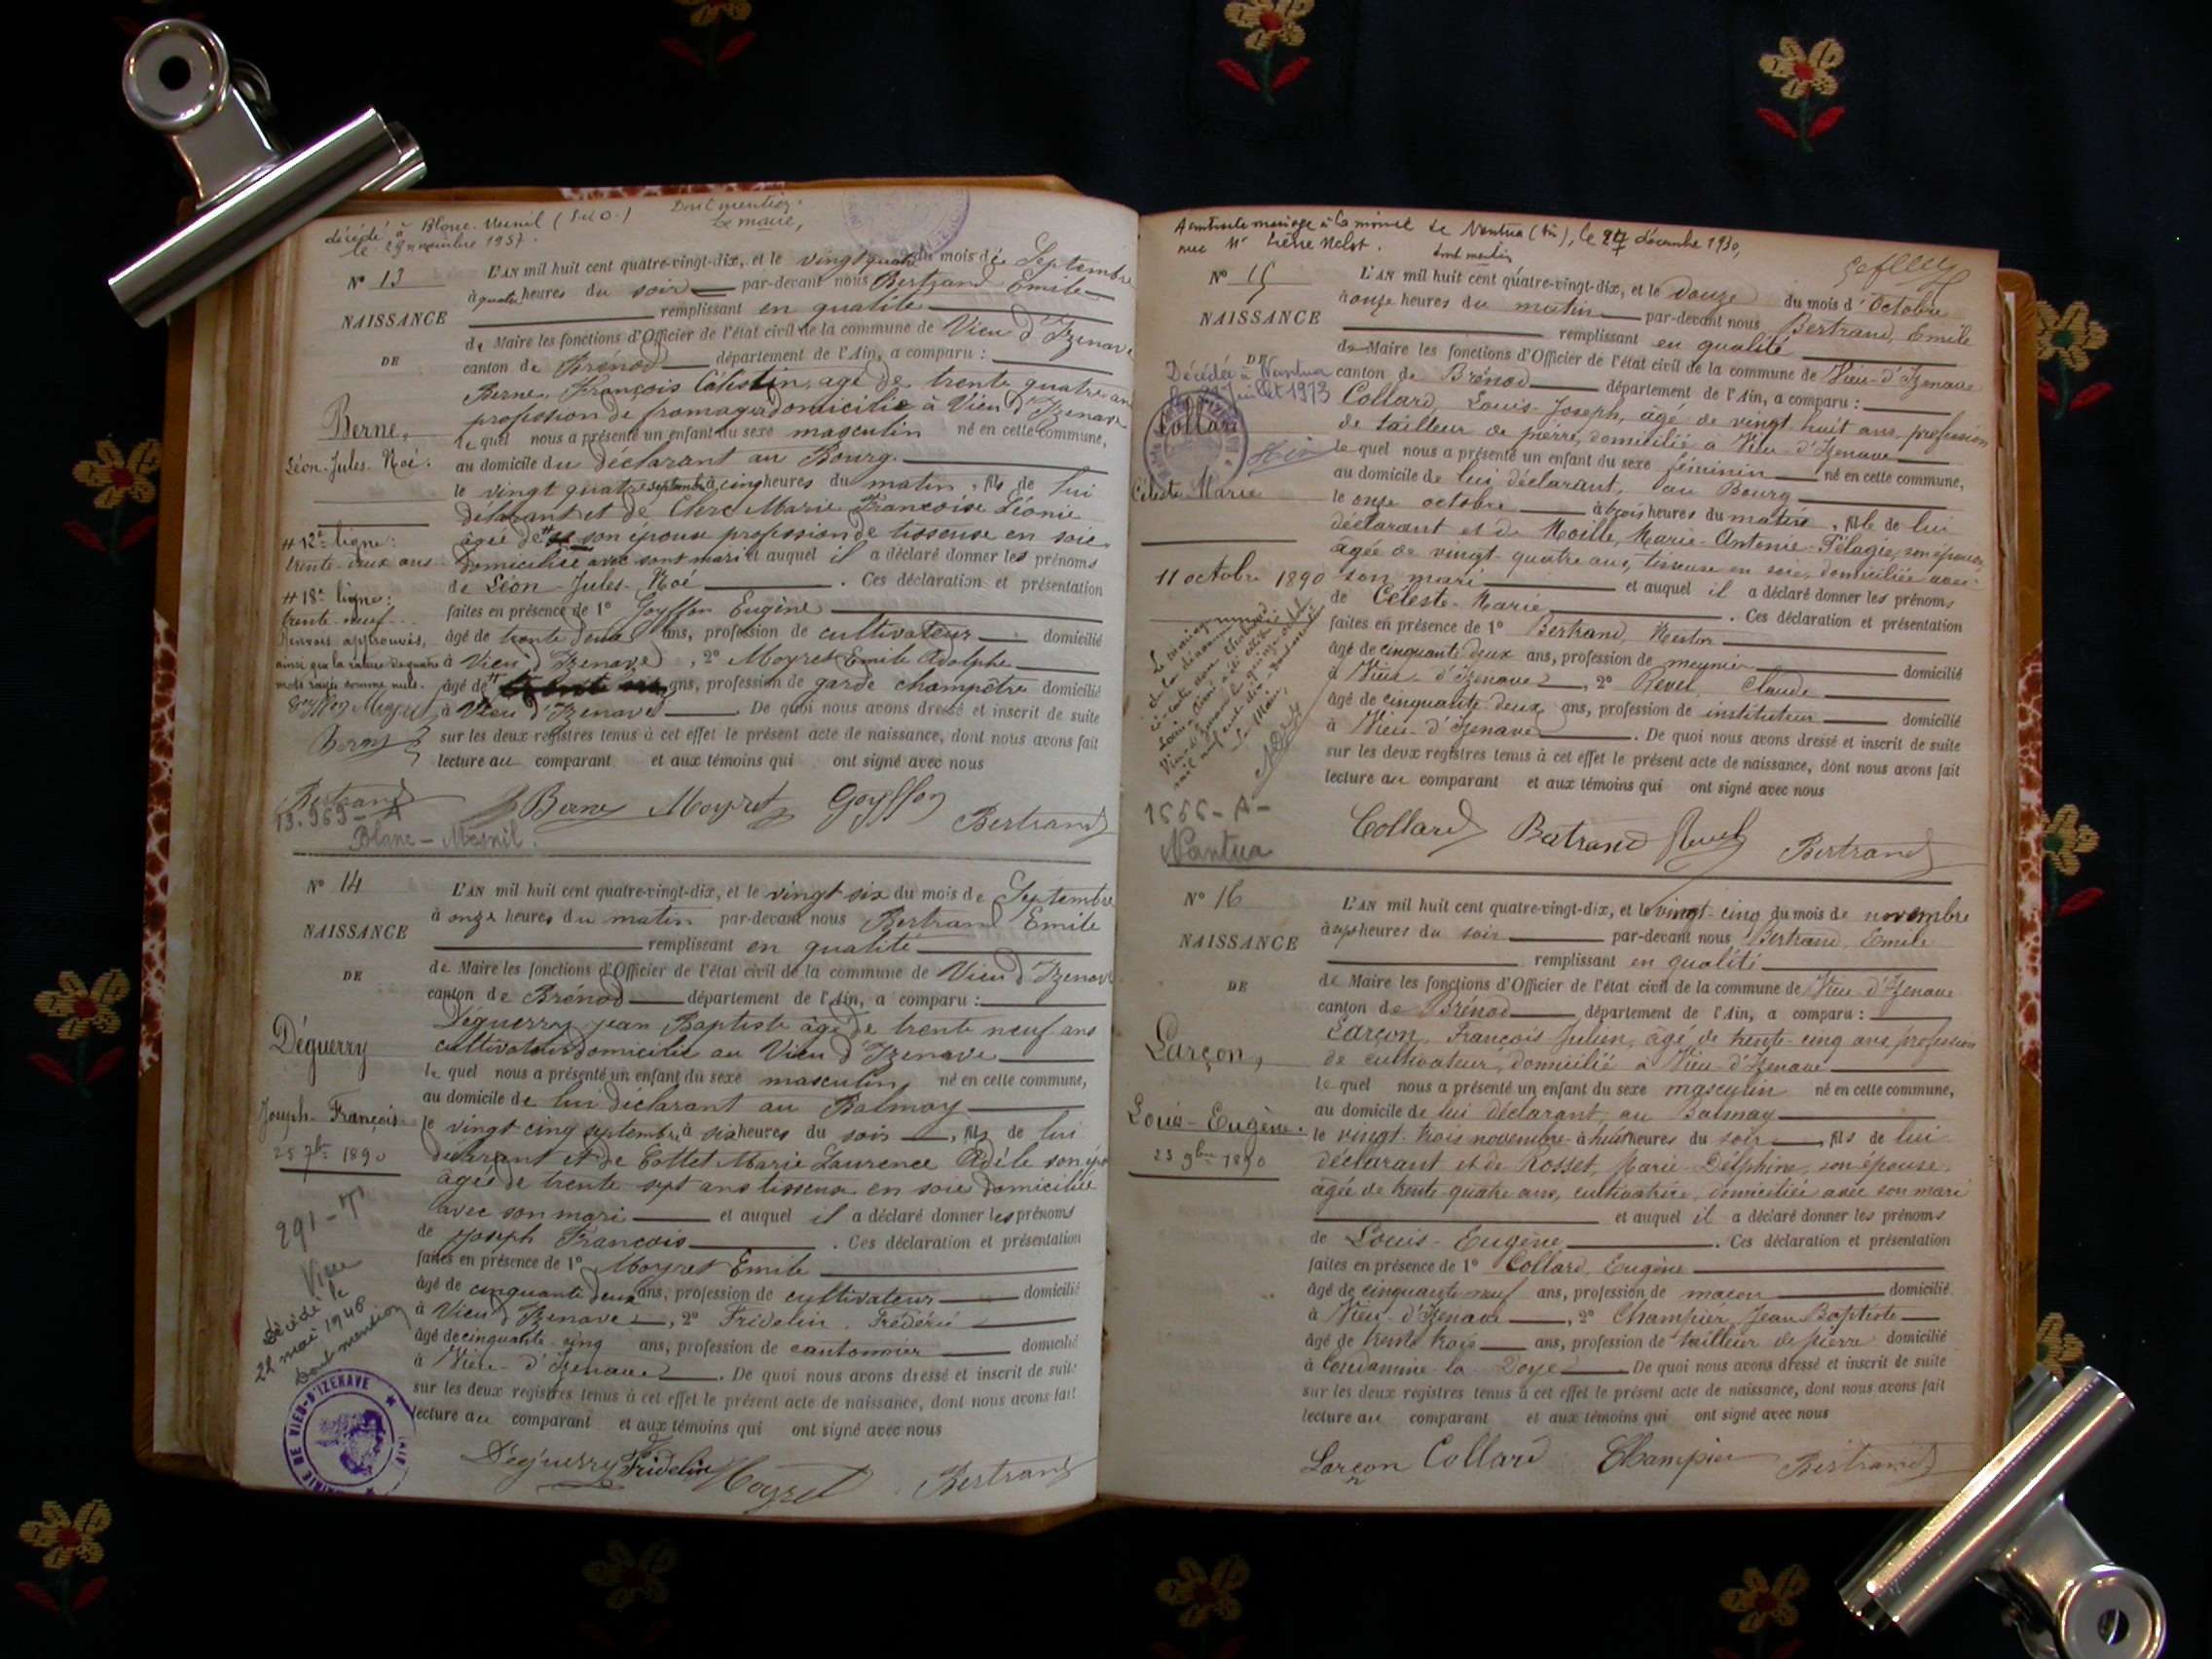 décédé à Blanc-Mesnil (S et O.)
le 29 novembre 1957.
Dont mention.
Le maire,
N° 13
NAISSANCE
DE
Berne,
Léon-Jules-Noé.
# 12e ligne:
trente-deux ans
# 18e ligne:
trente-neuf
Renvois approuvés,
ainsi que la rature de quatre
mots rayés comme nuls.
Goyffon Moyret
Berne
Bertrand
13.969-A
Blanc-Mesnil.
L'AN mil huit cent quatre-vingt-dix, et le vingt quatre du mois de Septembre
à quatre heures du soir par-devant nous Bertrand Emile
remplissant en qualité
de Maire les fonctions d'Officier de l'état civil de la commune de Vieu d'Izenave
canton de Brénod département de l'Ain, a comparu :
Berne, François Célestin, agé de trente quatre ans
profession de fromager domicilié à Vieu d'Izenave
le quel nous a présenté un enfant du sexe masculin né en cette commune,
au domicile du déclarant au Bourg.
le vingt quatre septembre à cinq heures du matin, fils de lui
déclarant et de Clerc Marie Françoise Léonie
âgée de # son épouse profession de tisseuse en soie
domiciliée avec sont mari et auquel il a déclaré donner les prénoms
de Léon-Jules-Noé. Ces déclaration et présentation
faites en présence de 1° Goyffon Eugène
âgé de trente deux ans, profession de cultivateur domicilié
à Vieu d'Izenave, 2° Moyret Emile Adolphe
âgé de # ans, profession de garde champêtre domicilié
à Vieu d'Izenave. De quoi nous avons dressé et inscrit de suite
sur les deux registres tenus à cet effet le présent acte de naissance, dont nous avons fait
lecture au comparant et aux témoins qui ont signé avec nous
Berne Moyret Goyffon Bertrand
N° 14
NAISSANCE
DE
Déguerry
Joseph-François
25 7bre 1890
291-T
Vieu
Décédé le
22 mai 1948
Dont mention
MAIRIE DE VIEU-D'IZENAVE (AIN)
L'AN mil huit cent quatre-vingt-dix, et le vingt six du mois de Septembre
à onze heures du matin par-devant nous Bertrand Emile
remplissant en qualité
de Maire les fonctions d'Officier de l'état civil de la commune de Vieu d'Izenave
canton de Brénod département de l'Ain, a comparu :
Déguerry jean Baptiste âgé de trente neuf ans
cultivateur domicilié au Vieu d'Izenave
le quel nous a présenté un enfant du sexe masculin né en cette commune,
au domicile de lui déclarant au Balmay
le vingt cinq septembre à six heures du soir, fils de lui
déclarant et de Cottet Marie Laurence Adèle son
âgée de trente sept ans tisseuse en soie domiciliée
avec son mari et auquel il a déclaré donner les prénoms
de joseph François. Ces déclaration et présentation
faites en présence de 1° Moyret Emile
âgé de cinquante deux ans, profession de cultivateur domicilié
à Vieu d'Izenave, 2° Fridelin Frédéric
âgé de cinquante-cinq ans, profession de cantonnier domicilié
à Vieu-d'Izenave. De quoi nous avons dressé et inscrit de suite
sur les deux registres tenus à cet effet le présent acte de naissance, dont nous avons fait
lecture au comparant et aux témoins qui ont signé avec nous
Déguerry Fridelin Moyret Bertrand
A contracté mariage à la mairie de Nantua (Ain), le 27 décembre 1930,
avec Mr
dont mention
N° 15
NAISSANCE
DE
Décédée à Nantua
juillet 1973
Collard
Céleste-Marie
11 octobre 1890
Le mariage
1666-A-
Nantua
L'AN mil huit cent quatre-vingt-dix, et le douze du mois d'Octobre
à onze heures du matin par-devant nous Bertrand, Emile
remplissant en qualité
de Maire les fonctions d'Officier de l'état civil de la commune de Vieu-d'Izenave
canton de Brénod département de l'Ain, a comparu :
Collard, Louis-Joseph, âgé de vingt huit ans, profession
de tailleur de pierre, domicilié à Vieu-d'Izenave
le quel nous a présenté un enfant du sexe féminin né en cette commune,
au domicile de lui déclarant, au Bourg
le onze octobre à trois heures du matin, fille de lui
déclarant et de Moille, Marie-Antonie-Pélagie, son épouse,
âgée de vingt-quatre ans, tisseuse en soie, domiciliée avec
son mari et auquel il a déclaré donner les prénoms
de Céleste-Marie. Ces déclaration et présentation
faites en présence de 1° Bertrand, Nestor
âgé de cinquante deux ans, profession de meunier domicilié
à Vieu-d'Izenave, 2° Revel, Claude
âgé de cinquante deux ans, profession de instituteur domicilié
à Vieu-d'Izenave. De quoi nous avons dressé et inscrit de suite
sur les deux registres tenus à cet effet le présent acte de naissance, dont nous avons fait
lecture au comparant et aux témoins qui ont signé avec nous
Collard Bertrand Revel Bertrand
N° 16
NAISSANCE
DE
Larçon,
Louis-Eugène.
23 9bre 1890
L'AN mil huit cent quatre-vingt-dix, et le vingt-cinq du mois de novembre
à sept heures du soir par-devant nous Bertrand, Emile
remplissant en qualité
de Maire les fonctions d'Officier de l'état civil de la commune de Vieu-d'Izenave
canton de Brénod département de l'Ain, a comparu :
Larçon, François Julien, âgé de trente-cinq ans, profession
de cultivateur, domicilié à Vieu-d'Izenave
le quel nous a présenté un enfant du sexe masculin né en cette commune,
au domicile de lui déclarant, au Balmay
le vingt-trois novembre à huit heures du soir, fils de lui
déclarant et de Rosset, Marie-Delphine, son épouse,
âgée de trente quatre ans, cultivatrice, domiciliée avec son mari
et auquel il a déclaré donner les prénoms
de Louis-Eugène. Ces déclaration et présentation
faites en présence de 1° Collard, Eugène
âgé de cinquante neuf ans, profession de maçon domicilié
à Vieu-d'Izenave, 2° Champier, Jean Baptiste
âgé de trente trois ans, profession de tailleur de pierre domicilié
à Condamine-la-Doye. De quoi nous avons dressé et inscrit de suite
sur les deux registres tenus à cet effet le présent acte de naissance, dont nous avons fait
lecture au comparant et aux témoins qui ont signé avec nous
Larçon Collard Champier Bertrand